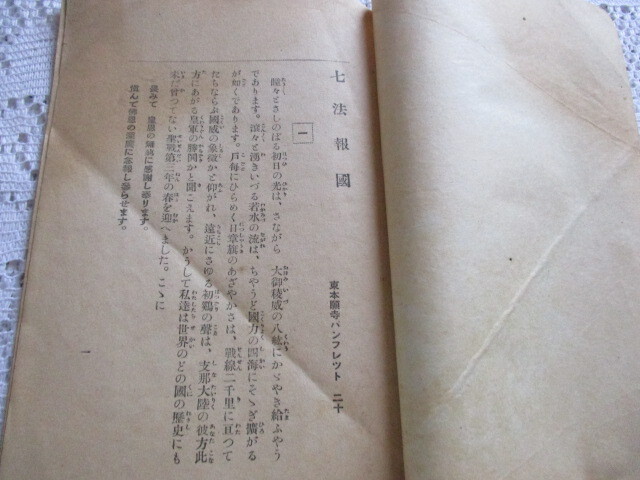 七法報國
東本願寺パンフレット 二十
一
曈々とさしのぼる初日の光は、さながら 大御稜威の八紘にかゞやき給ふやう
であります。滾々と湧きいづる若水の流は、ちやうど國力の四海にそゝぎ擴がる
が如くであります。戸毎にひらめく日章旗のあざやかさは、戰線二千里に亘つて
たちならぶ國威の象徴かと仰がれ、遠近にきゆる初鷄の聲は、支那大陸の彼方此
方にあがる皇軍の勝鬨かと聞こえます。かうして私達は世界のどの國の歴史にも
未だ曾つてない聖戰第二年の春を迎へました。こゝに
謹みて 皇恩の に感謝し奉ります。
愼んで の に念 し參らせます。
一